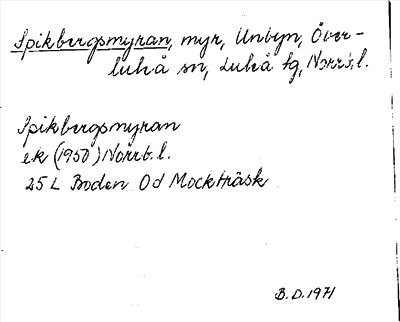 Spikbergsmyran, myr, Unbyn, Över-
luleå sn, Luleå tg, Norrb. l.
Spikbergsmyran
ek (1950) Norrb. l.
25 L Boden Od Mockträsk
B. D. 1971